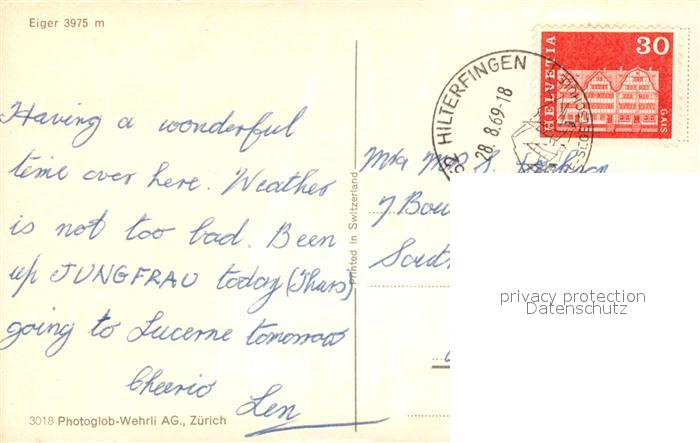 Eiger 3975 m
Having a wonderful
time over here. Weather
is not too bad. Been
up JUNGFRAU today (Thurs)
going to Lucerne tomorrow
Cheerio
Len
3018 Photoglob-Wehrli AG., Zürich
Printed in Switzerland
HILTERFINGEN
28.8.69-18
HELVETIA
30
GAIS
South
privacy protection
Datenschutz